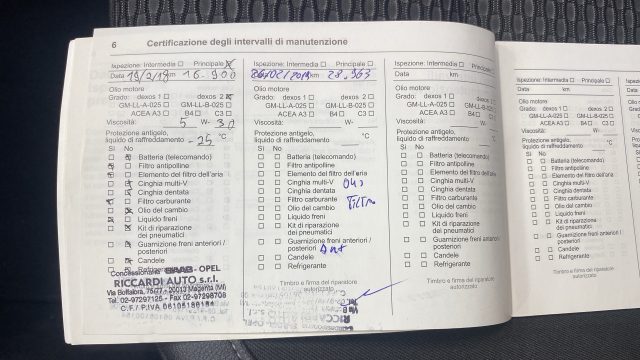 6 Certificazione degli intervalli di manutenzione
Ispezione: Intermedia Principale
Data 19/2/18 km 16.900
Olio motore
Grado: dexos 1 dexos 2
GM-LL-A-025 GM-LL-B-025
ACEA A3 B4 C3
Viscosità: 5 W- 30
Protezione antigelo,
liquido di raffreddamento -25 °C
Sì No
Batteria (telecomando)
Filtro antipolline
Elemento del filtro dell'aria
Cinghia multi-V
Cinghia dentata
Filtro carburante
Olio del cambio
Liquido freni
Kit di riparazione
dei pneumatici
Guarnizione freni anteriori /
posteriori
Candele
Refrigerante
Concessionaria SAAB - OPEL
RICCARDI AUTO s.r.l.
Via Boffalora, 75/77 - 20013 Magenta (MI)
Tel. 02-97297125 - Fax 02-97298708
C.F./P.IVA
Ispezione: Intermedia Principale
Data 26/02/2019 km 28.963
Olio motore
Grado: dexos 1 dexos 2
GM-LL-A-025 GM-LL-B-025
ACEA A3 B4 C3
Viscosità: W-
Protezione antigelo,
liquido di raffreddamento °C
Sì No
Batteria (telecomando)
Filtro antipolline
Elemento del filtro dell'aria
Cinghia multi-V
Cinghia dentata
Filtro carburante
Olio del cambio
Liquido freni
Kit di riparazione
dei pneumatici
Guarnizione freni anteriori /
posteriori Ant
Candele
Refrigerante
Timbro e firma del riparatore
autorizzato
Ispezione: Intermedia Principale
Data km
Olio motore
Grado: dexos 1 dexos 2
GM-LL-A-025 GM-LL-B-025
ACEA A3 B4 C3
Viscosità: W-
Protezione antigelo,
liquido di raffreddamento °C
Sì No
Batteria (telecomando)
Filtro antipolline
Elemento del filtro dell'aria
Cinghia multi-V
Cinghia dentata
Filtro carburante
Olio del cambio
Liquido freni
Kit di riparazione
dei pneumatici
Guarnizione freni anteriori /
posteriori
Candele
Refrigerante
Timbro e firma del riparatore
autorizzato
Ispezione: Intermedia Principale
Data km
Olio motore
Grado: dexos 1 dexos 2
GM-LL-A-025 GM-LL-B-025
ACEA A3 B4 C3
Viscosità: W-
Protezione antigelo,
liquido di raffreddamento °C
Sì No
Batteria (telecomando)
Filtro antipolline
Elemento del filtro dell'aria
Cinghia multi-V
Cinghia dentata
Filtro carburante
Olio del cambio
Liquido freni
Kit di riparazione
dei pneumatici
Guarnizione freni anteriori /
posteriori
Candele
Refrigerante
Timbro e firma del riparatore
autorizzato